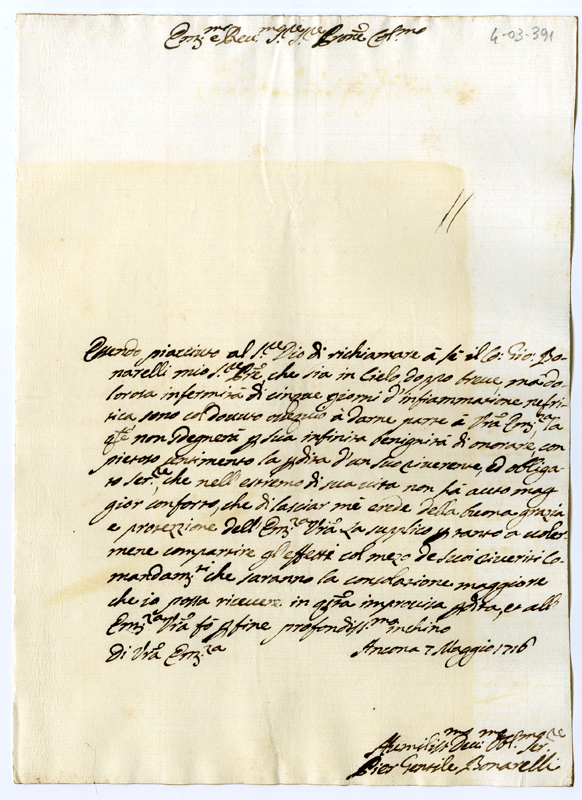 Em.mo e Rev.mo Sig.re Sig.re Pron.e Col.mo
4-03-391
Essendo piacciuto al S.re Dio di richiamare à se il Co: Gio: Bo-
narelli mio S.re Pre, che sia in Cielo doppo breve, mà do-
lorosa infermità di cinque giorni d'infiammazione nefri-
tica, sono col dovuto ossequio à darne parte à Vra Em.za, la
qle non sdegnerà p sua infinita benignità di onorare, con
pietoso sentimento la pdita d'un suo riverente, ed obliga-
to Ser.re, che nell'estremo di sua vita non hà avuto mag-
gior conforto, che di lasciar mè erede della buona grazia
e protezzione dell'Em.za Vra. La supplico p tanto a voler-
mene compartire gl'effetti col mezo de suoi riveriti Co-
mandam.ti che saranno la consolazione maggiore
che io possa ricevere in qsta improvisa pdita, et all'
Em.za Vra fò p fine profondiss.mo inchino
Di Vra Em.za Ancona 7 Maggio 1716
Humiliss.mo Dev.mo Obl.mo Ser.re
Pier Gentile Bonarelli